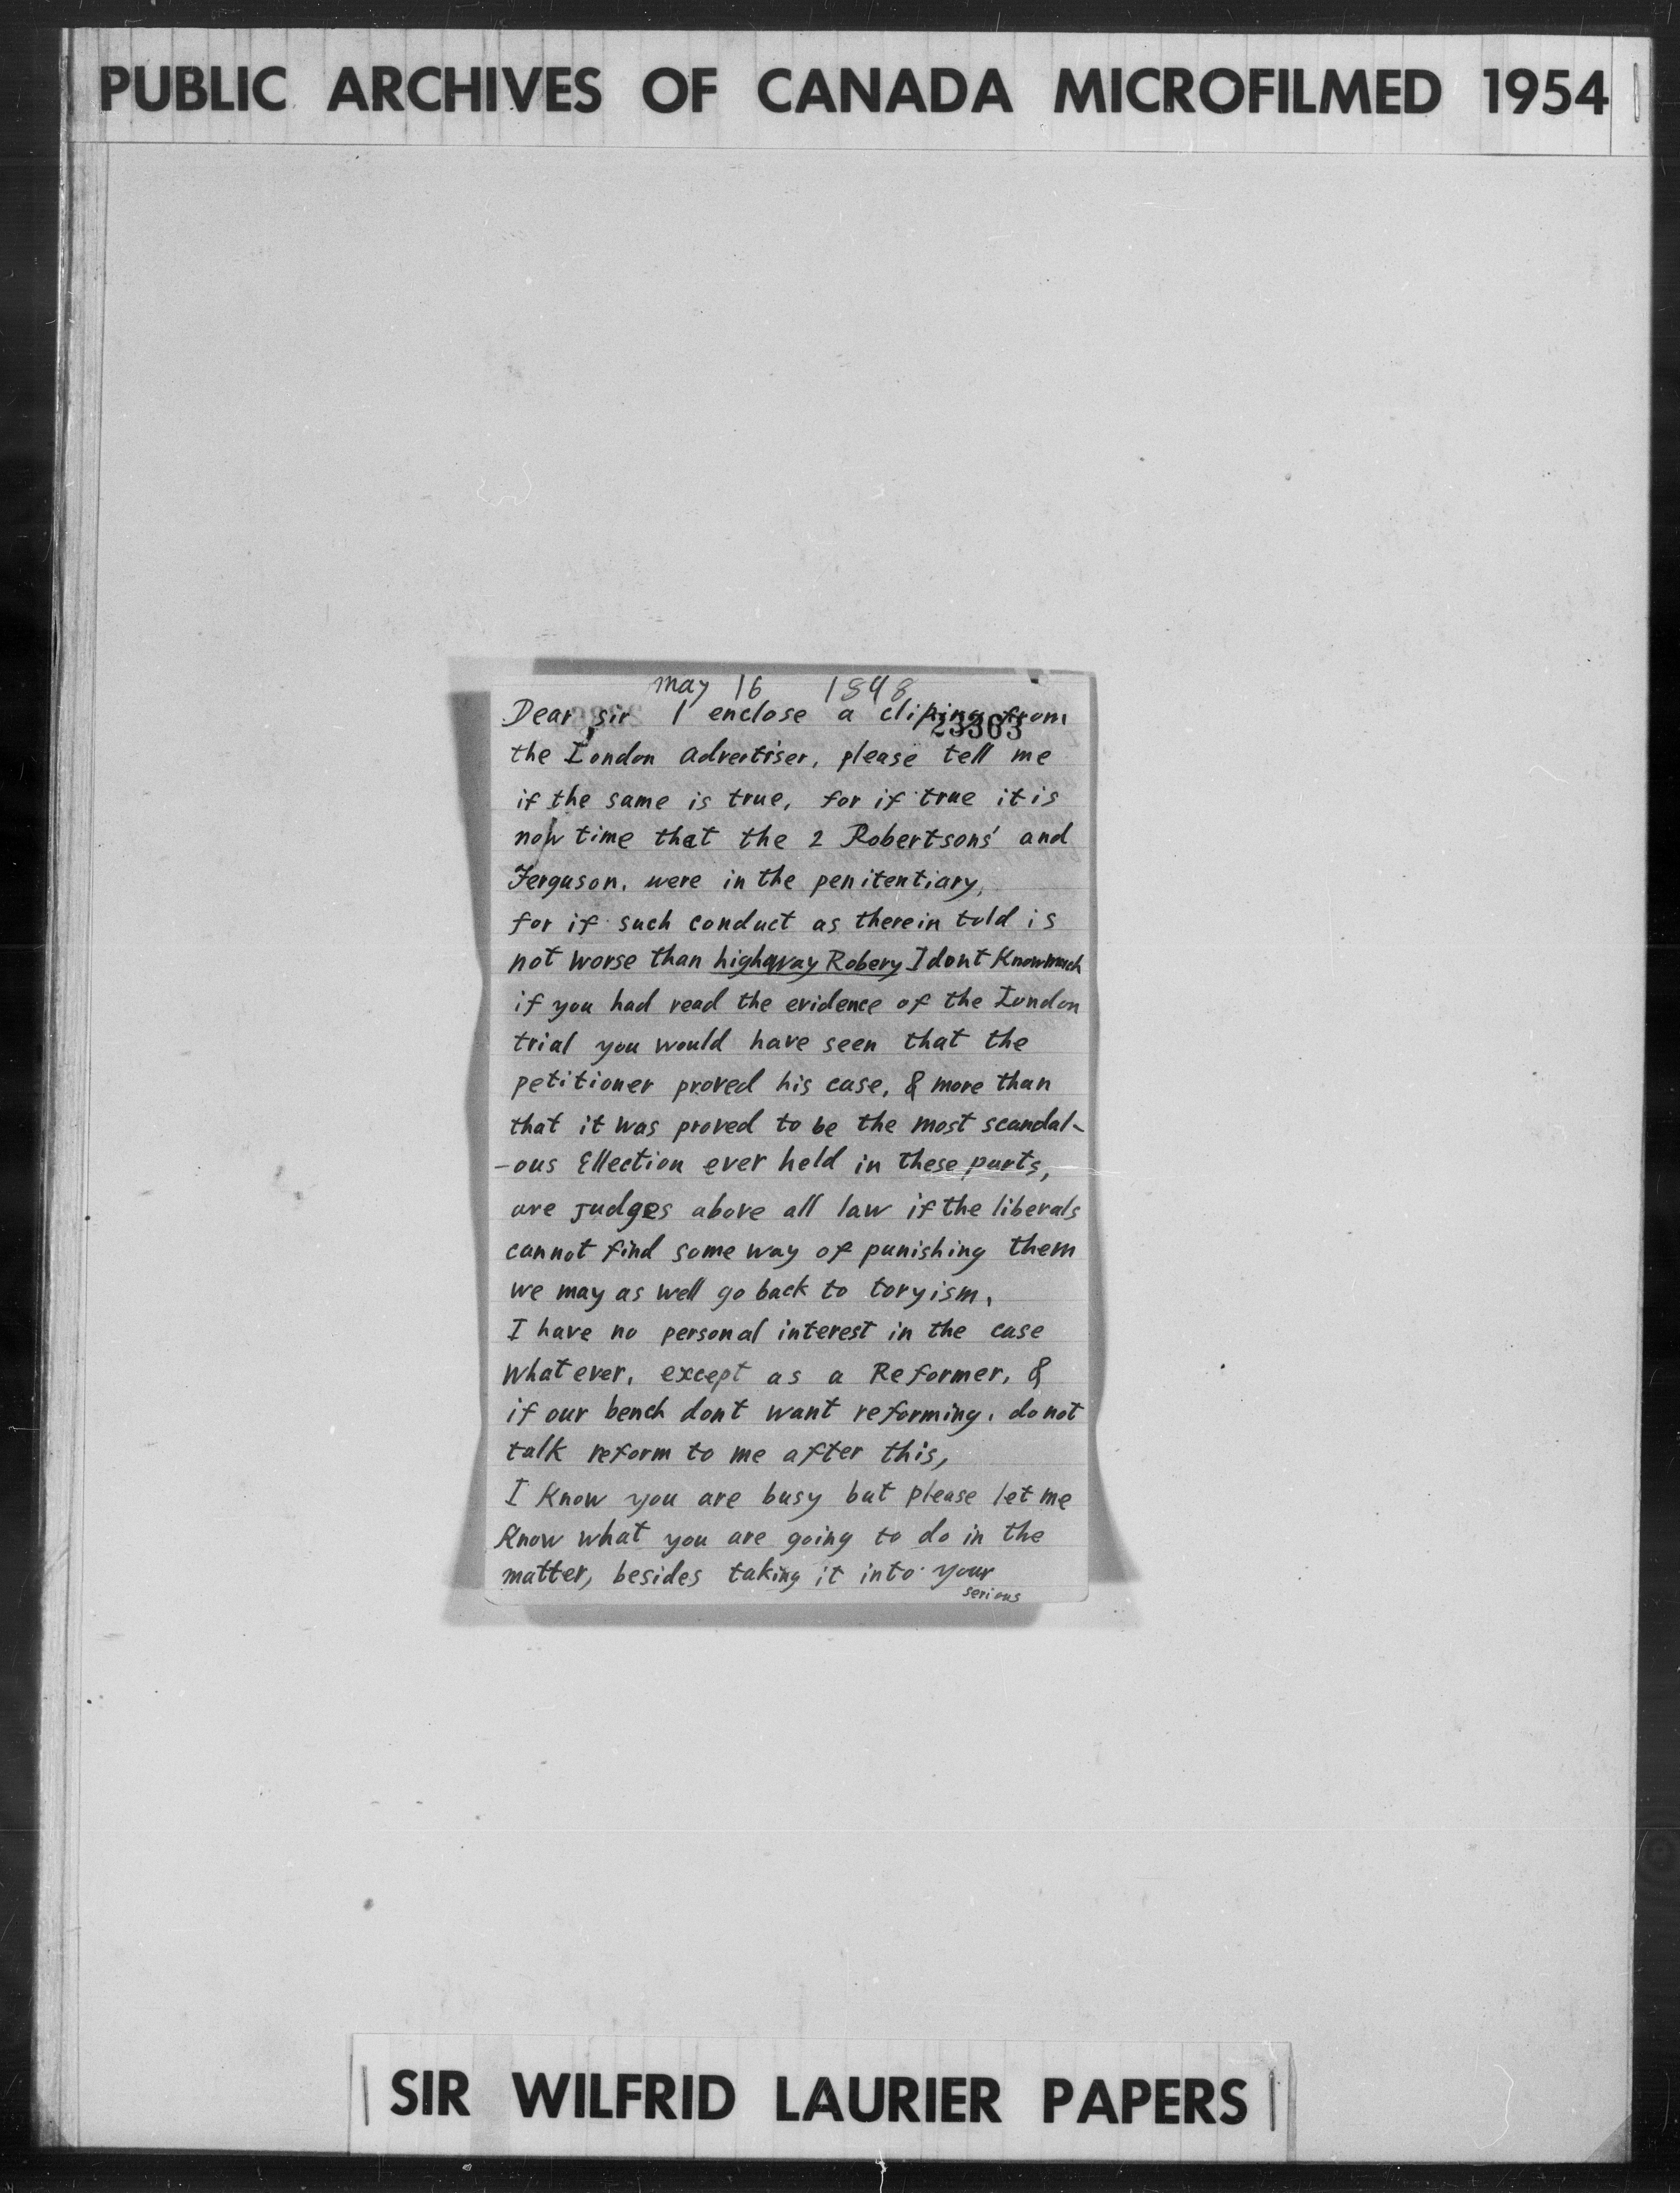 PUBLIC ARCHIVES OF CANADA MICROFILMED 1954
may 16 1898
Dear sir I enclose a cliping from
23363
the London advertiser, please tell me
if the same is true, for if true it is
now time that the 2 Robertsons' and
Ferguson, were in the penitentiary,
for if such conduct as therein told is
not worse than highway Robery I dont Know much
if you had read the evidence of the London
trial you would have seen that the
petitioner proved his case, & more than
that it was proved to be the most scandal-
-ous Ellection ever held in these parts,
are Judges above all law if the liberals
cannot find some way of punishing them
we may as well go back to toryism,
I have no personal interest in the case
whatever, except as a Reformer, &
if our bench dont want reforming, do not
talk reform to me after this,
I Know you are busy but please let me
Know what you are going to do in the
matter, besides taking it into your
serious
SIR WILFRID LAURIER PAPERS